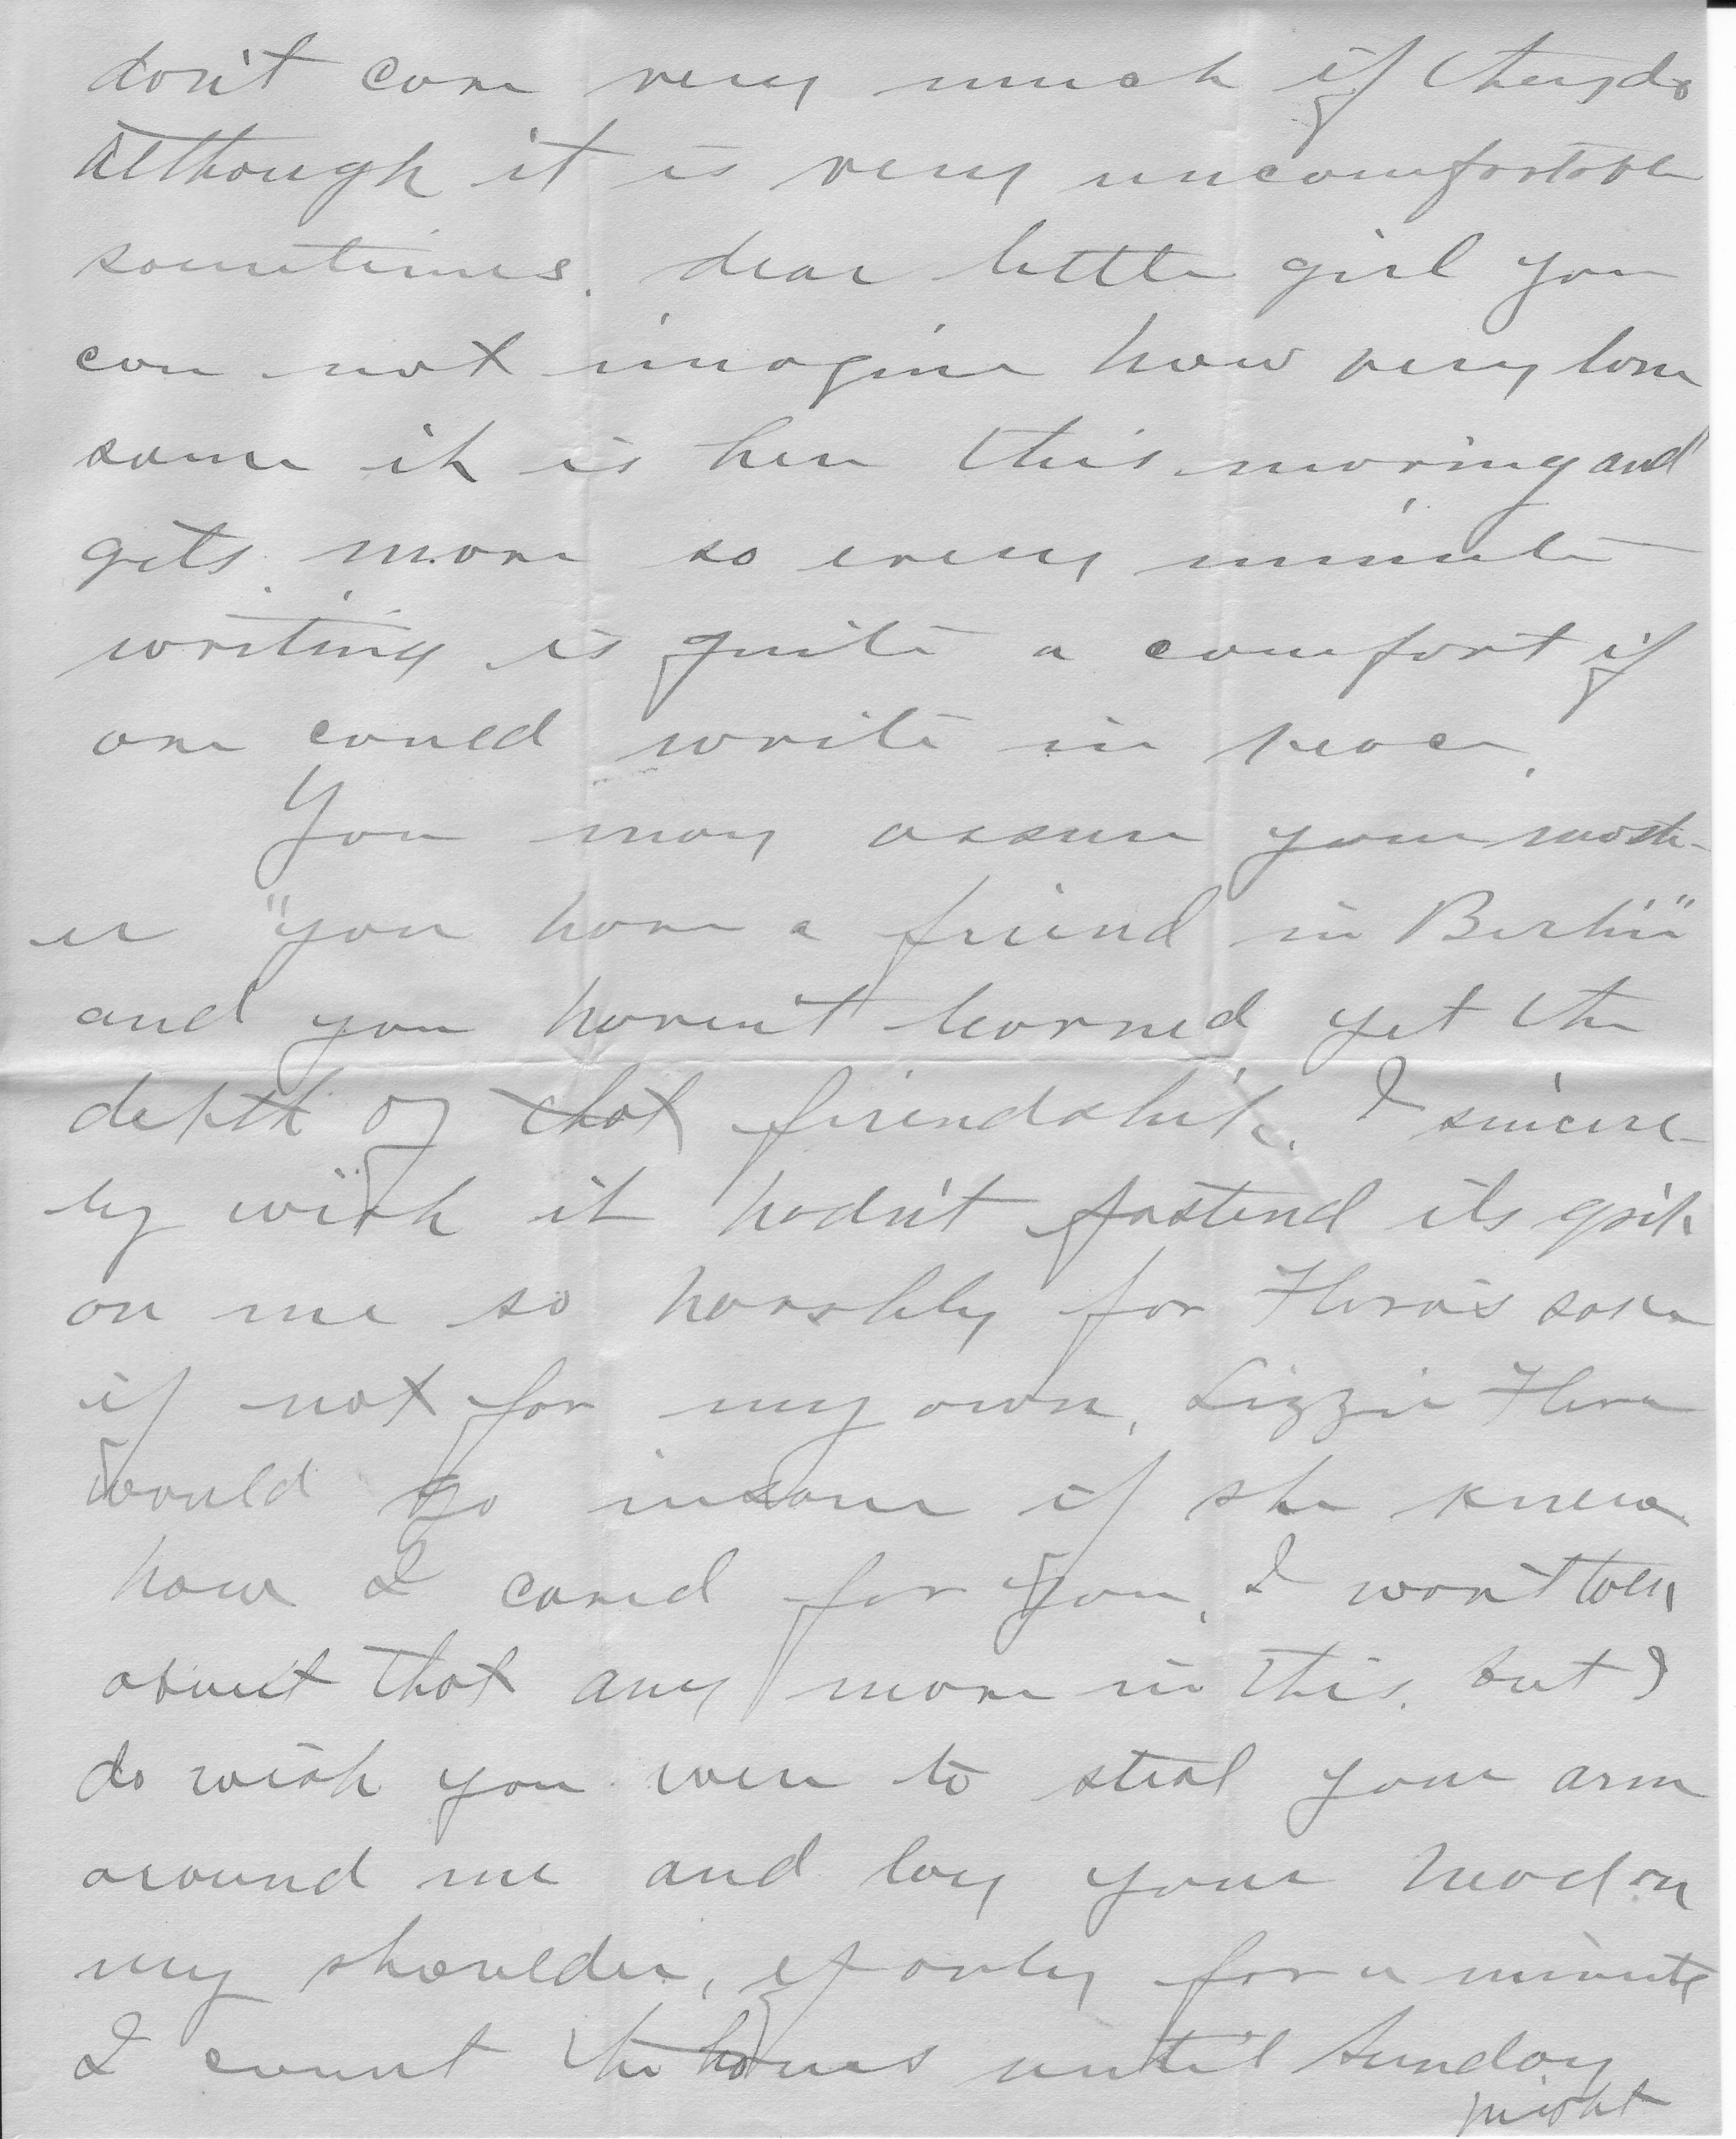 don't care very much if they do
Although it is very uncomfortable
sometimes. dear little girl you
can not imagine how very lone
some it is here this moring and
gets more so every minute
writing is quite a comfort if
one could write in peace.
You may assure your moth-
er "you have a friend in Berlin"
and you haven't learned yet the
depth of that friendship. I sincere-
ly wish it hadn't fastend its grip
on me so harshly for Flora's sake
if not for my own, Lizzie Flora
would go insane if she knew
how I cared for you, I won't talk
about that any more in this. but I
do wish you were to steal your arm
around me and lay your head on
my shoulder, if only for a minute
I count the hours until Sunday
night